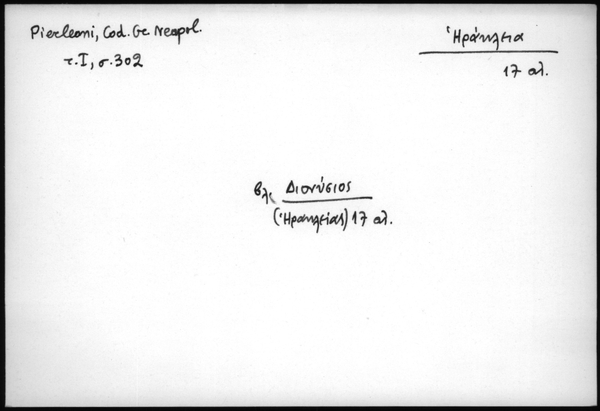 Pierleoni, Cod. Gr. Neapol.
τ. I, σ. 302
Ἡράκλεια
17 αἰ.
βλ. Διονύσιος
(Ἡρακλείας) 17 αἰ.